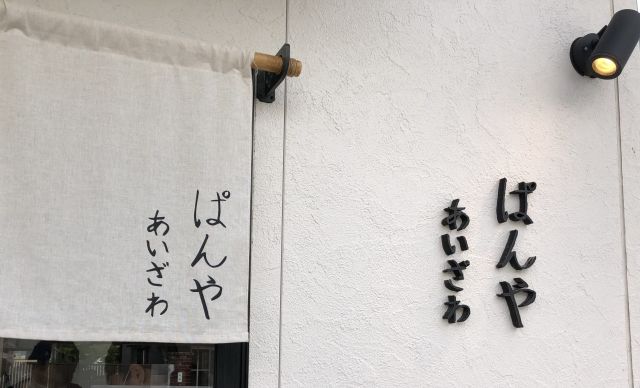 ぱんや
あいざわ
ぱんや
あいざわ